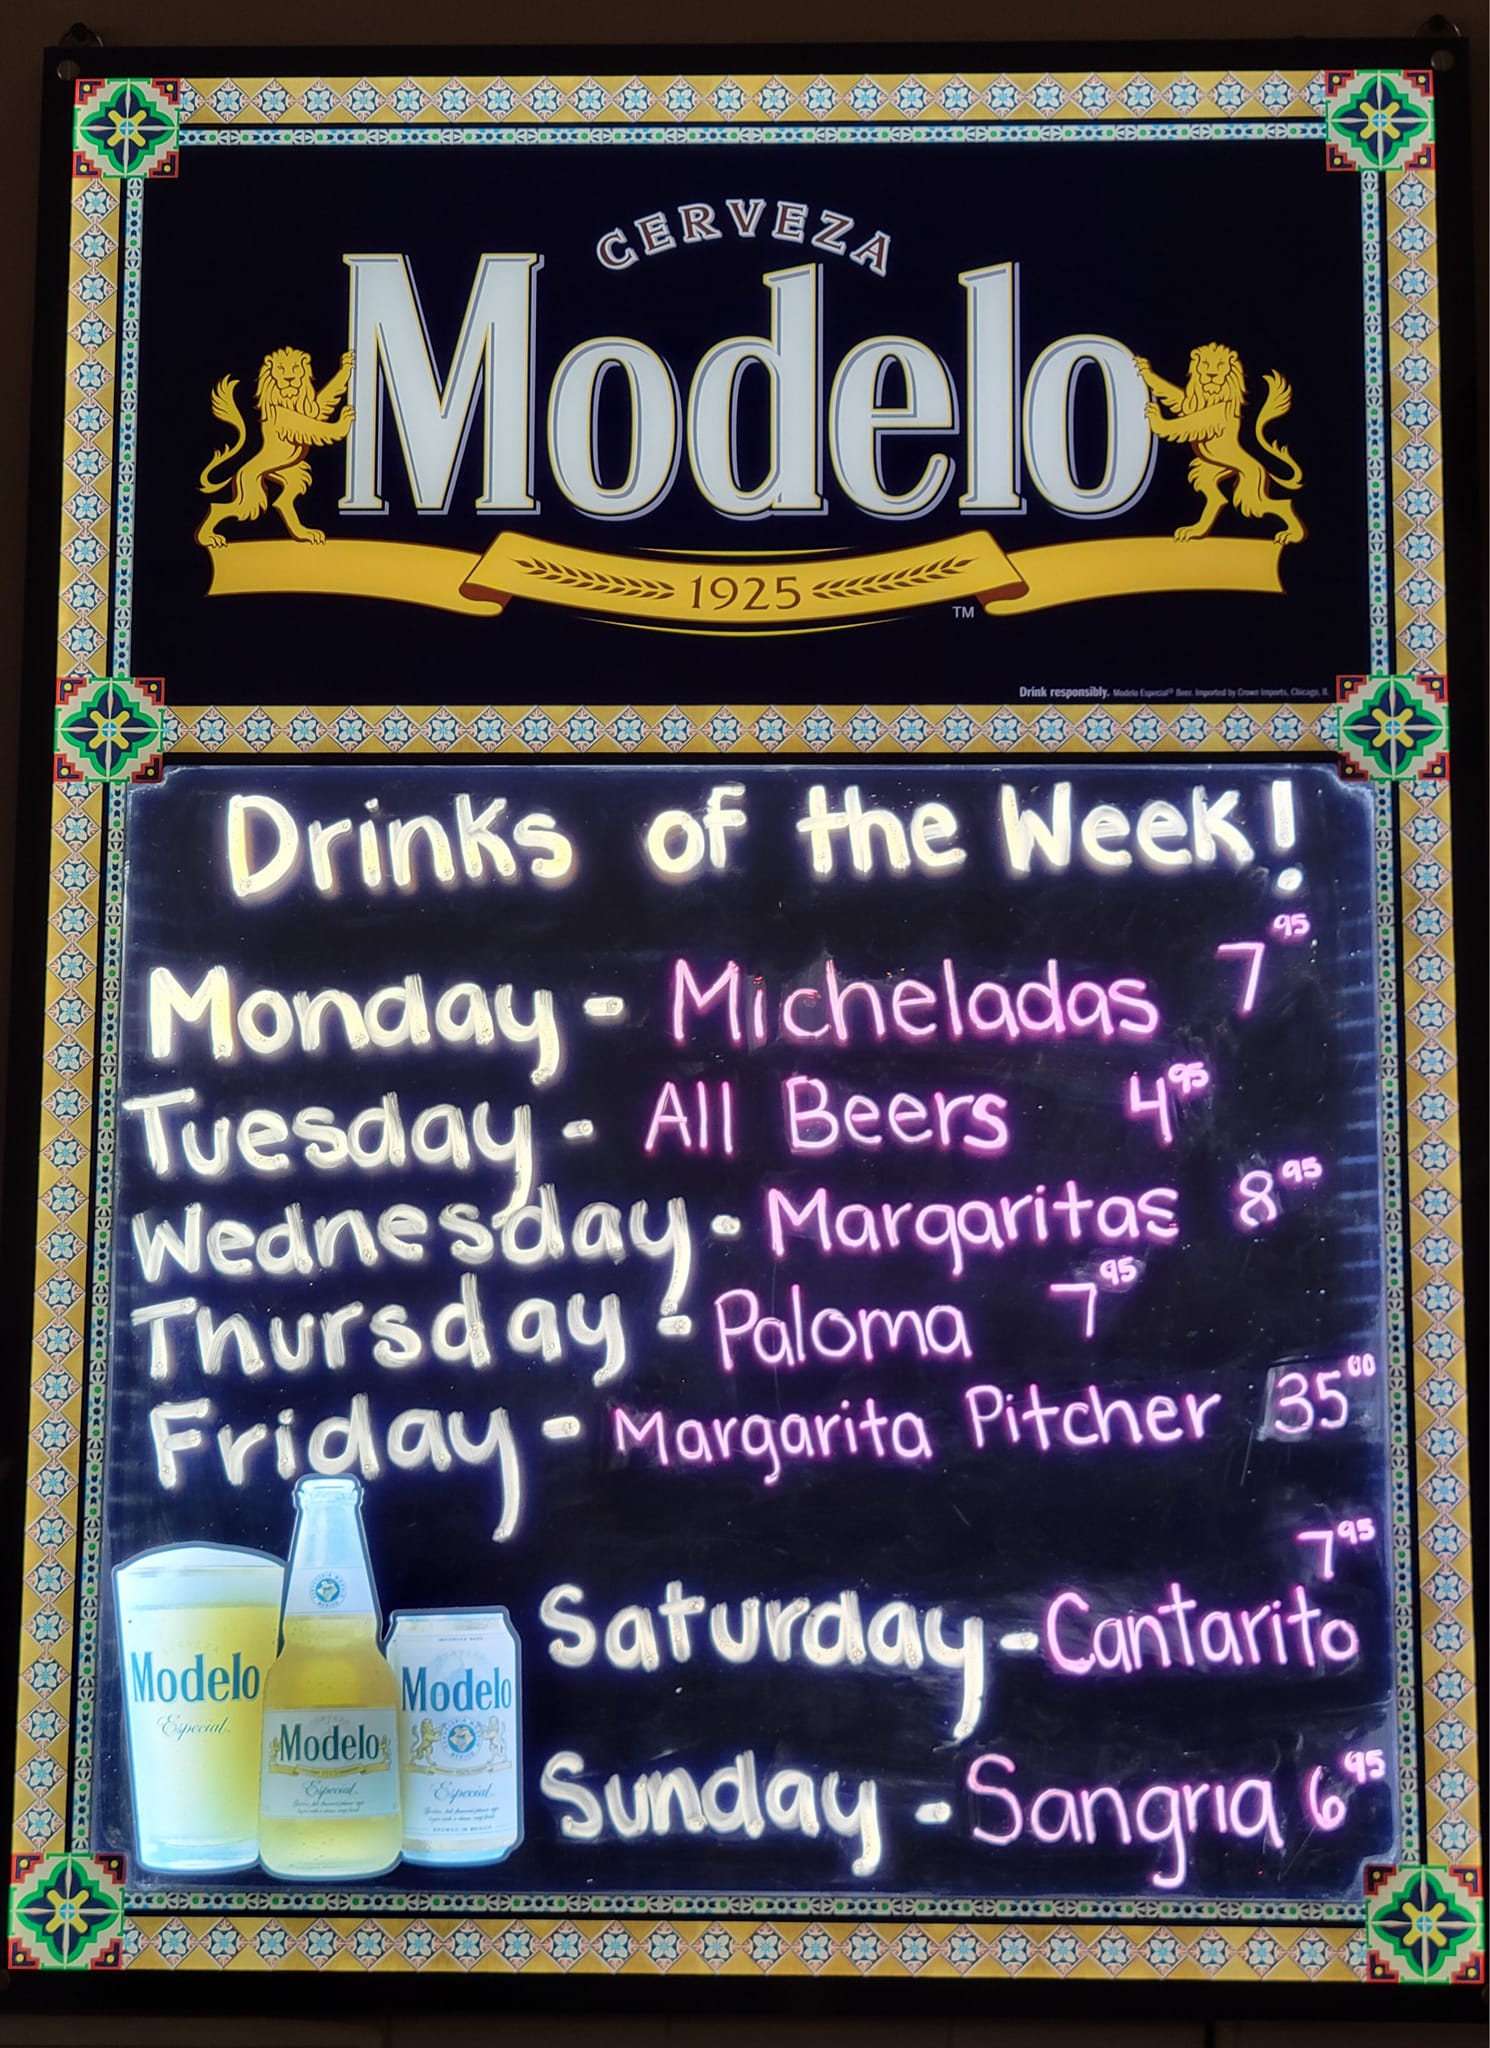 CERVEZA
Modelo
1925
TM
Drink responsibly. Modelo Especial® Beer. Imported by Crown Imports, Chicago, IL
Drinks of the Week!
Monday - Micheladas 7 95
Tuesday - All Beers 4 95
Wednesday - Margaritas 8 95
Thursday - Paloma 7 95
Friday - Margarita Pitcher 35 00
Saturday - Cantarito 7 95
Sunday - Sangria 6 95
Modelo
Especial
Modelo
Especial
Modelo
Especial